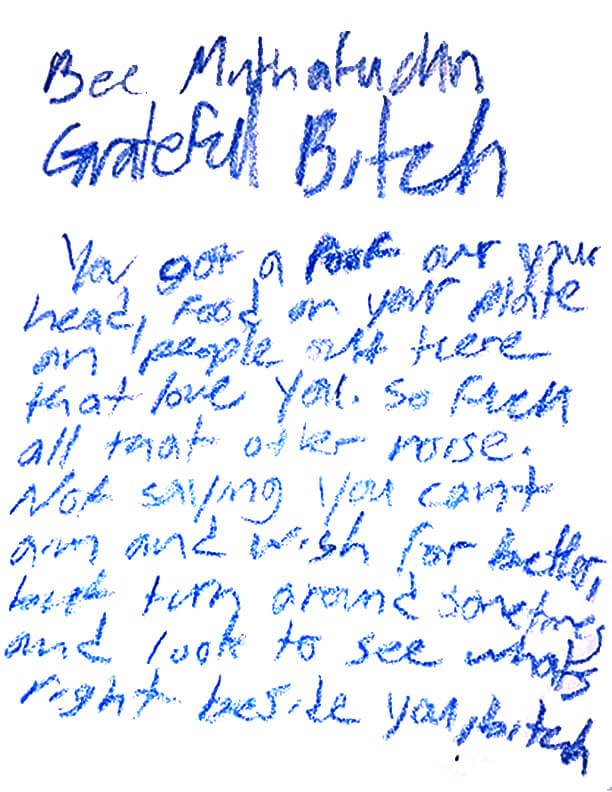 Bee Muthafuckin
Gratefull Bitch
You got a roof over your
head, food on your plate
an people out there
that love you. So fucK
all that other noise.
Not saying you can't
aim and wish for better,
but turn around sometimes
and look to see whats
right beside you, bitch